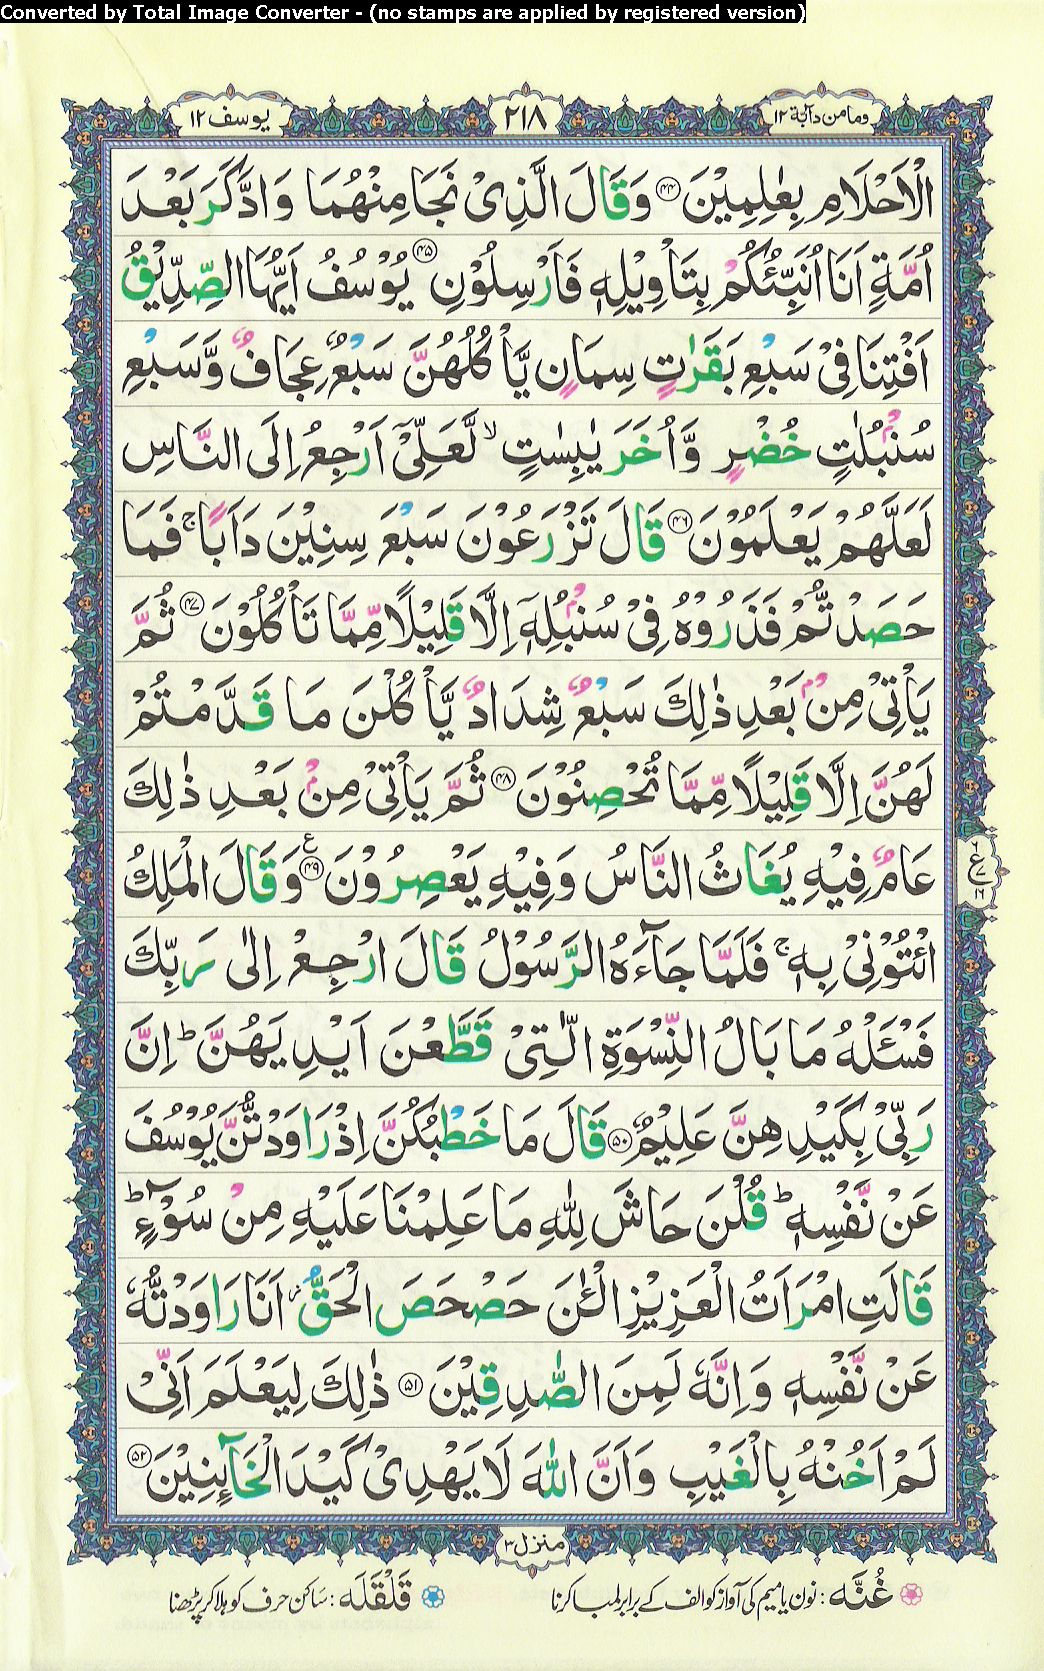 Converted by Total Image Converter - (no stamps are applied by registered version)
یوسف ۱۲
۲۱۸
وما من دآبة ۱۲
الْاَحْلَامِ بِعٰلِمِیْنَ ﴿۴۴﴾ وَقَالَ الَّذِیْ نَجَا مِنْهُمَا وَادَّكَرَ بَعْدَ
اُمَّةٍ اَنَا اُنَبِّئُكُمْ بِتَاْوِیْلِهٖ فَاَرْسِلُوْنِ ﴿۴۵﴾ یُوْسُفُ اَیُّهَا الصِّدِّیْقُ
اَفْتِنَا فِیْ سَبْعِ بَقَرٰتٍ سِمَانٍ یَّاْكُلُهُنَّ سَبْعٌ عِجَافٌ وَّسَبْعِ
سُنْۢبُلٰتٍ خُضْرٍ وَّاُخَرَ یٰبِسٰتٍ ۙ لَّعَلِّیْۤ اَرْجِعُ اِلَی النَّاسِ
لَعَلَّهُمْ یَعْلَمُوْنَ ﴿۴۶﴾ قَالَ تَزْرَعُوْنَ سَبْعَ سِنِیْنَ دَاَبًا ۚ فَمَا
حَصَدْتُّمْ فَذَرُوْهُ فِیْ سُنْۢبُلِهٖۤ اِلَّا قَلِیْلًا مِّمَّا تَاْكُلُوْنَ ﴿۴۷﴾ ثُمَّ
یَاْتِیْ مِنْۢ بَعْدِ ذٰلِكَ سَبْعٌ شِدَادٌ یَّاْكُلْنَ مَا قَدَّمْتُمْ
لَهُنَّ اِلَّا قَلِیْلًا مِّمَّا تُحْصِنُوْنَ ﴿۴۸﴾ ثُمَّ یَاْتِیْ مِنْۢ بَعْدِ ذٰلِكَ
عَامٌ فِیْهِ یُغَاثُ النَّاسُ وَفِیْهِ یَعْصِرُوْنَ ﴿۴۹﴾ ع وَقَالَ الْمَلِكُ
ائْتُوْنِیْ بِهٖ ۚ فَلَمَّا جَآءَهُ الرَّسُوْلُ قَالَ ارْجِعْ اِلٰی رَبِّكَ
فَسْـَٔلْهُ مَا بَالُ النِّسْوَةِ الّٰتِیْ قَطَّعْنَ اَیْدِیَهُنَّ ؕ اِنَّ
رَبِّیْ بِكَیْدِهِنَّ عَلِیْمٌ ﴿۵۰﴾ قَالَ مَا خَطْبُكُنَّ اِذْ رَاوَدْتُّنَّ یُوْسُفَ
عَنْ نَّفْسِهٖ ؕ قُلْنَ حَاشَ لِلّٰهِ مَا عَلِمْنَا عَلَیْهِ مِنْ سُوْٓءٍ ؕ
قَالَتِ امْرَاَتُ الْعَزِیْزِ الْـٰٔنَ حَصْحَصَ الْحَقُّ ؗ اَنَا رَاوَدْتُّهٗ
عَنْ نَّفْسِهٖ وَاِنَّهٗ لَمِنَ الصّٰدِقِیْنَ ﴿۵۱﴾ ذٰلِكَ لِیَعْلَمَ اَنِّیْ
لَمْ اَخُنْهُ بِالْغَیْبِ وَاَنَّ اللّٰهَ لَا یَهْدِیْ كَیْدَ الْخَآئِنِیْنَ ﴿۵۲﴾
۶
ع
۷
۱۶
منزل ۳
غُنَّه : نون یا میم کی آواز کو الف کے برابر لمبا کرنا
قَلْقَلَه : ساکن حرف کو ہلا کر پڑھنا